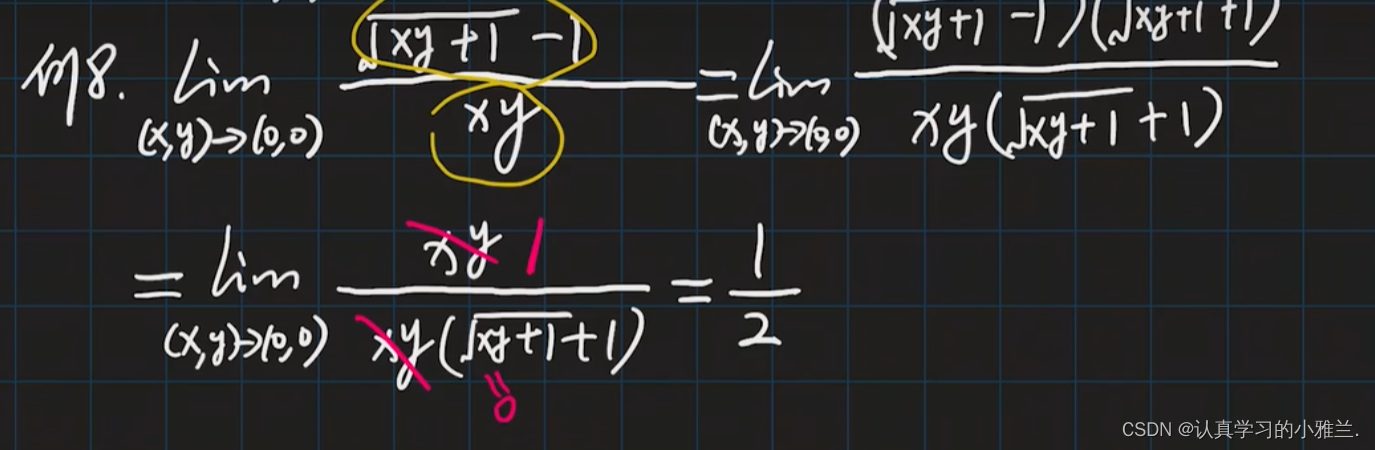 例8. lim_{(x,y)→(0,0)} \frac{\sqrt{xy+1} -1}{xy} = lim_{(x,y)→(0,0)} \frac{(\sqrt{xy+1} -1)(\sqrt{xy+1} +1)}{xy(\sqrt{xy+1} +1)}
= lim_{(x,y)→(0,0)} \frac{xy 1}{xy(\sqrt{xy+1}+1)} = \frac{1}{2}
=0
CSDN @认真学习的小雅兰.